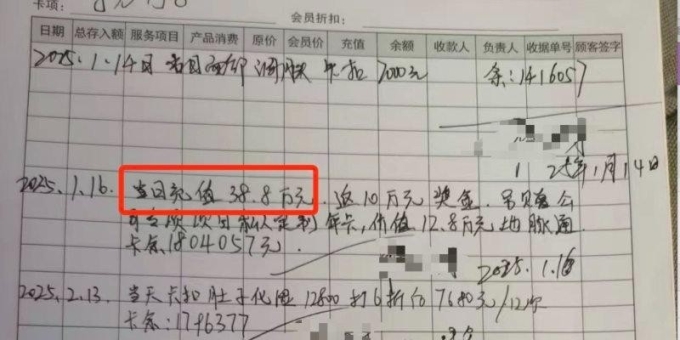 卡项:
会员折扣:
日期 总存入额 服务项目 产品消费 原价 会员价 充值 余额 收款人 负责人 收据单号 顾客签字
2025.1.14日 当日面部 调肤 卡扣 7000元 余:1416057
2025年1月14日
2025.1.16. 当日充值 38.8万元. 返10万元 奖金.
专项项目私人定制年卡,价值12.8万元 地脉通
卡余1804057元.
2025.1.16
2025.2.13. 当天卡扣肚子化 12800 打6折后 7680元/12次
卡余:1796377